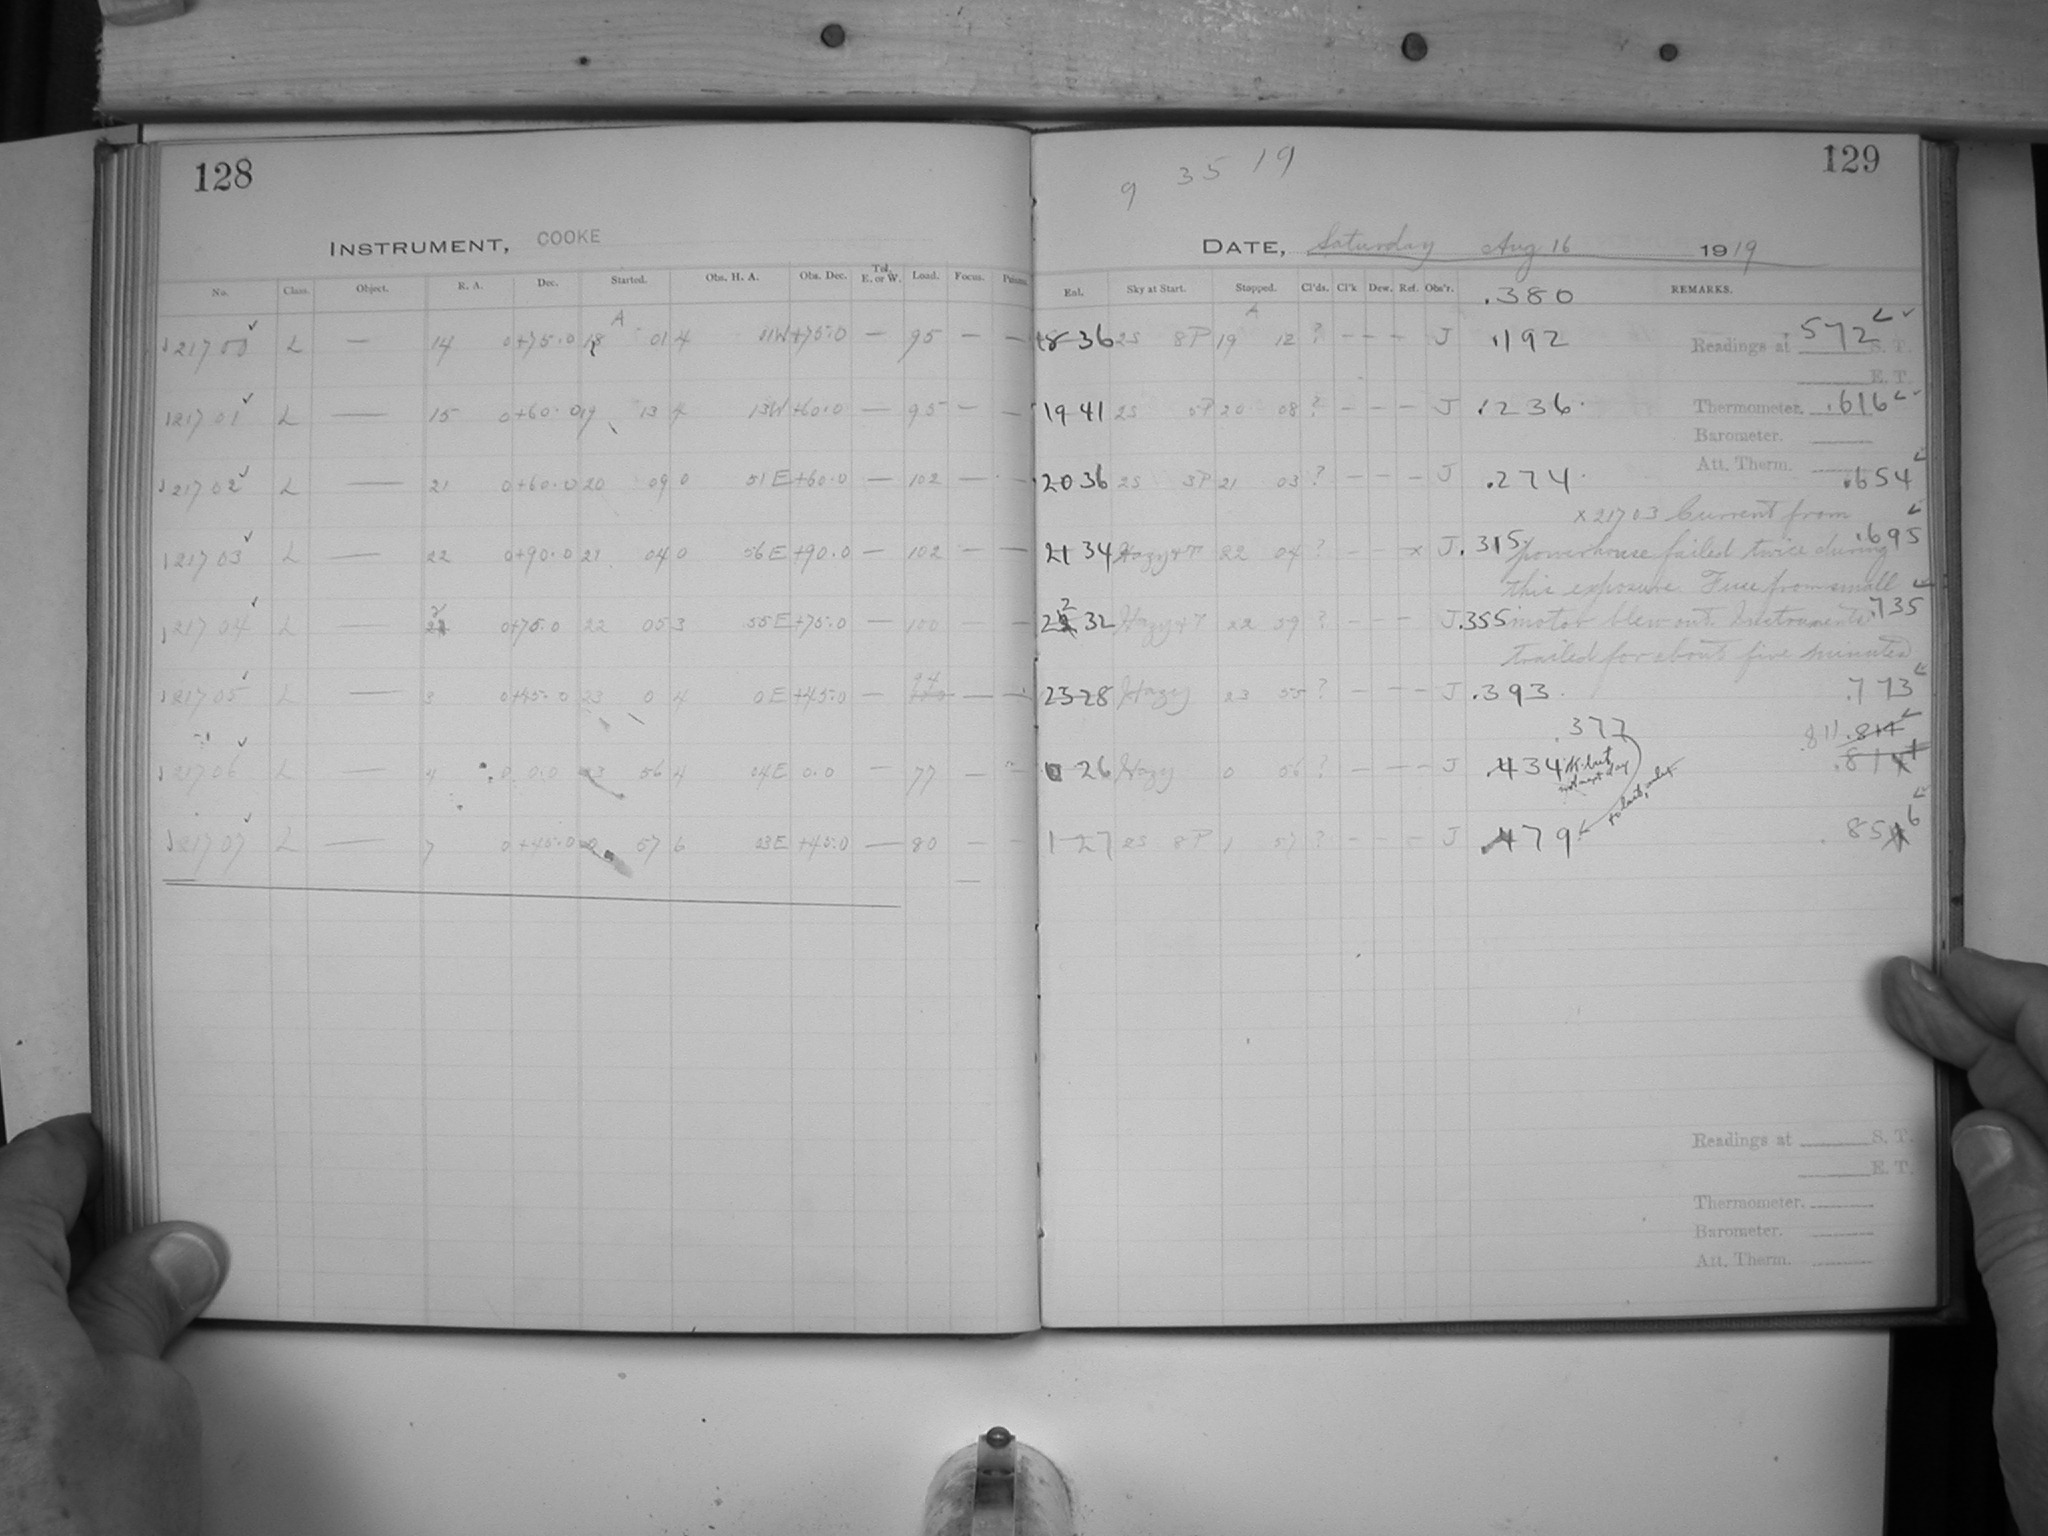 128
INSTRUMENT, COOKE
No. Class. Object. R. A. Dec. Started. Obs. H. A. Obs. Dec. Tel. E. or W. Load. Focus.
A
21700 L — 14 0 +75.0 18 01 4 11W +75.0 — 95 — —
21701 L — 15 0 +60.0 19 13 4 13W +60.0 — 95 — —
21702 L — 21 0 +60.0 20 09 0 51E +60.0 — 102 — —
21703 L — 22 0 +90.0 21 04 0 56E +90.0 — 102 — —
21704 L — 0 +75.0 22 05 3 55E +75.0 — 100 — —
94
21705 L — 3 0 +45.0 23 0 4 0E +45.0 — — —
21706 L — 4 0 0.0 23 56 4 04E 0.0 — 77 — —
21707 L — 7 0 +45.0 0 57 6 23E +45.0 — 80 — —
129
9 35 19
DATE, Saturday Aug 16 1919
Exl. Sky at Start. Stopped. Cl'ds. Cl'k Dew. Ref. Obs'r. .380 REMARKS.
A
18 36 2S 8P 19 12 ? – – – J .192 Readings at .572 S. T.
E. T.
19 41 2S 5P 20 08 ? – – – J .236 Thermometer. .616
Barometer.
20 36 2S 3P 21 03 ? – – – J .274 Att. Therm. .654
x 21703 Current from
21 34 Hazy 22 04 ? – – x J .315 powerhouse failed twice during .695
this exposure. Fuse from small
22 32 Hazy 22 59 ? – – – J .355 motor blew out. Instruments .735
trailed for about five minutes
23 28 Hazy 23 55 ? – – – J .393 .773
.377 .811 .814
0 26 Hazy 0 56 ? – – – J .434 .814
not next day
1 27 2S 8P 1 57 ? – – – J .479 .856
Readings at S. T.
E. T.
Thermometer.
Barometer.
Att. Therm.